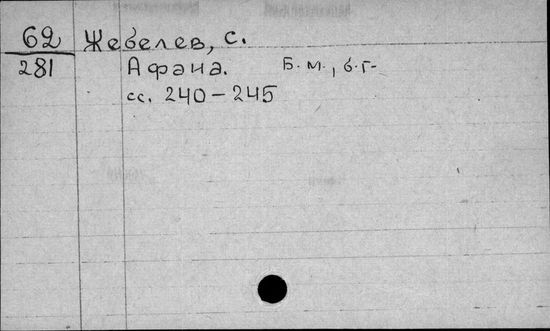 62 Жебелев, с.
281 Афана. Б.м., б.г-
сс. 240-245